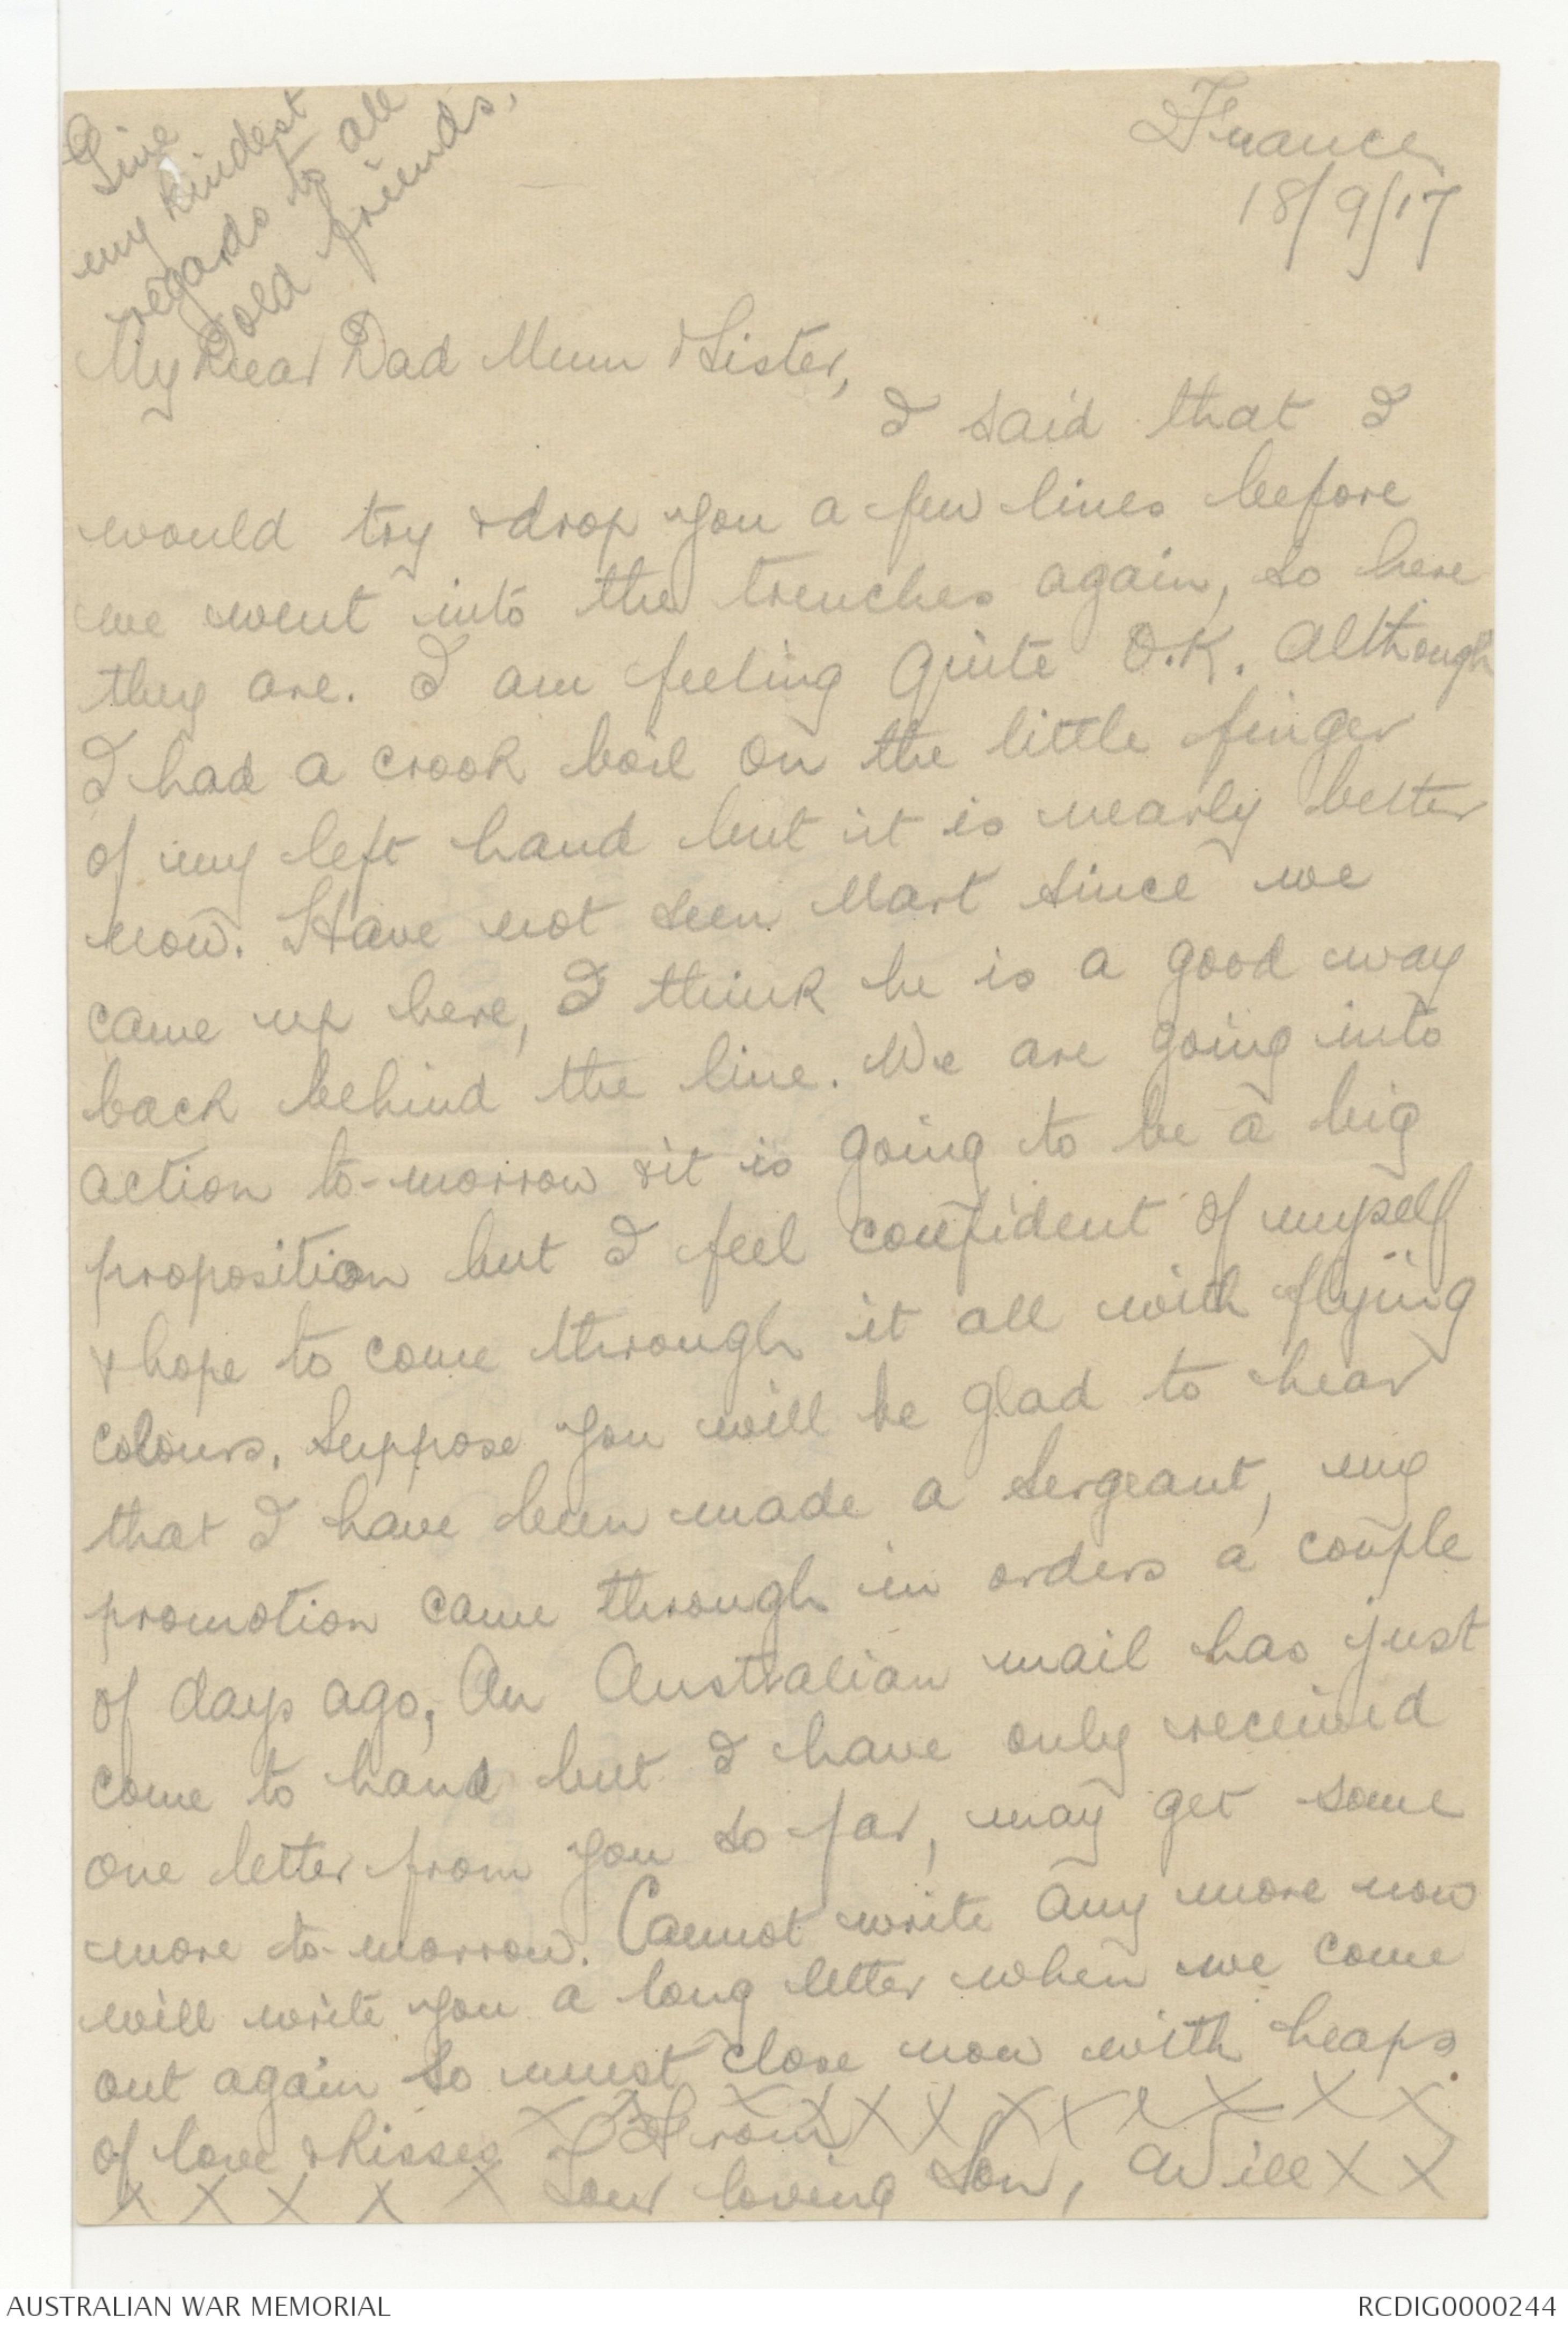 Give
my kindest
regards to all
old friends,
France
18/9/17
My Dear Dad Mum & Sister,
I said that I
would try & drop you a few lines before
we went into the trenches again, so here
they are. I am feeling quite O.K. although
I had a crook boil on the little finger
of my left hand but it is nearly better
now. Have not seen Mart since we
came up here, I think he is a good way
back behind the line. We are going into
action to-morrow & it is going to be a big
proposition but I feel confident of myself
& hope to come through it all with flying
colours. Suppose you will be glad to hear
that I have been made a Sergeant, my
promotion came through in orders a couple
of days ago, An Australian mail has just
come to hand but I have only received
one letter from you so far, may get some
more to-morrow. Cannot write any more now
will write you a long letter when we come
out again so must close now with heaps
of love & kisses From X X X X X X X X X X
X X X X X Your loving Son, Will X X
AUSTRALIAN WAR MEMORIAL
RCDIG0000244